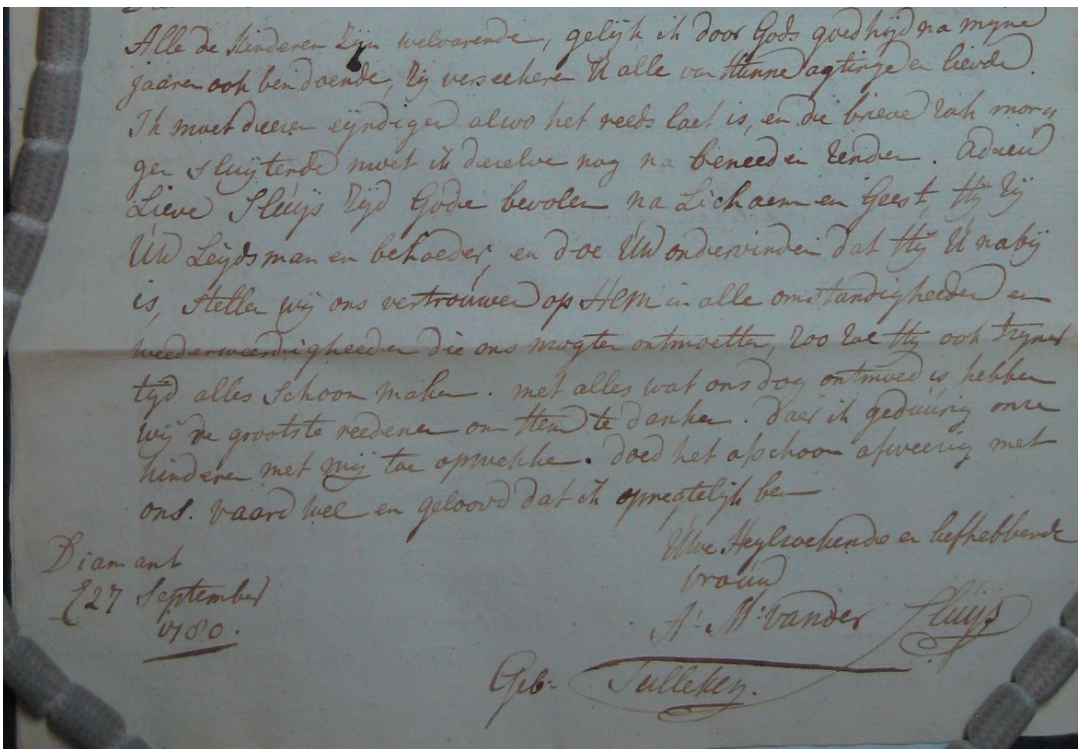 Alle de Kinderen zijn welvarende, gelijk ik door Gods goedhijd na myne
jaaren ook ben doende, zij verseekeren U alle van Hunne agtinge en lievde.
Ik moet deesen eyndigen alwo het reeds laet is, en de brieve zak mor
gen sluytende moet ik deselve nog na beneeden zenden. adieu
Lieve Sluijs zijd Gode bevolen na Lichaem en Geest, Hij zij
UW Leijdsman en behoeder, en doe UW ondervinden dat Hij U nabij
is, stellen wij ons vertrouwen op Hem in alle omstandigheeden en
weederweerdigheeden die ons mogten ontmoetten, zoo zal Hij ook t'zyner
tijd alles schoon maken. met alles wat ons dog ontmoed is hebben
wij de grootste reedenen om Hem te danken. Daer ik geduurig onse
kinderen met mij toe opwekke. doed het ofschoon afweesig met
ons. vaard wel en geloovd dat ik opregtelijk ben
Uwe Heylsoekende en liefhebbende
vrouw
A: M: van der Sluijs
Geb: Tulleken.
Diamant
27 September
1780.